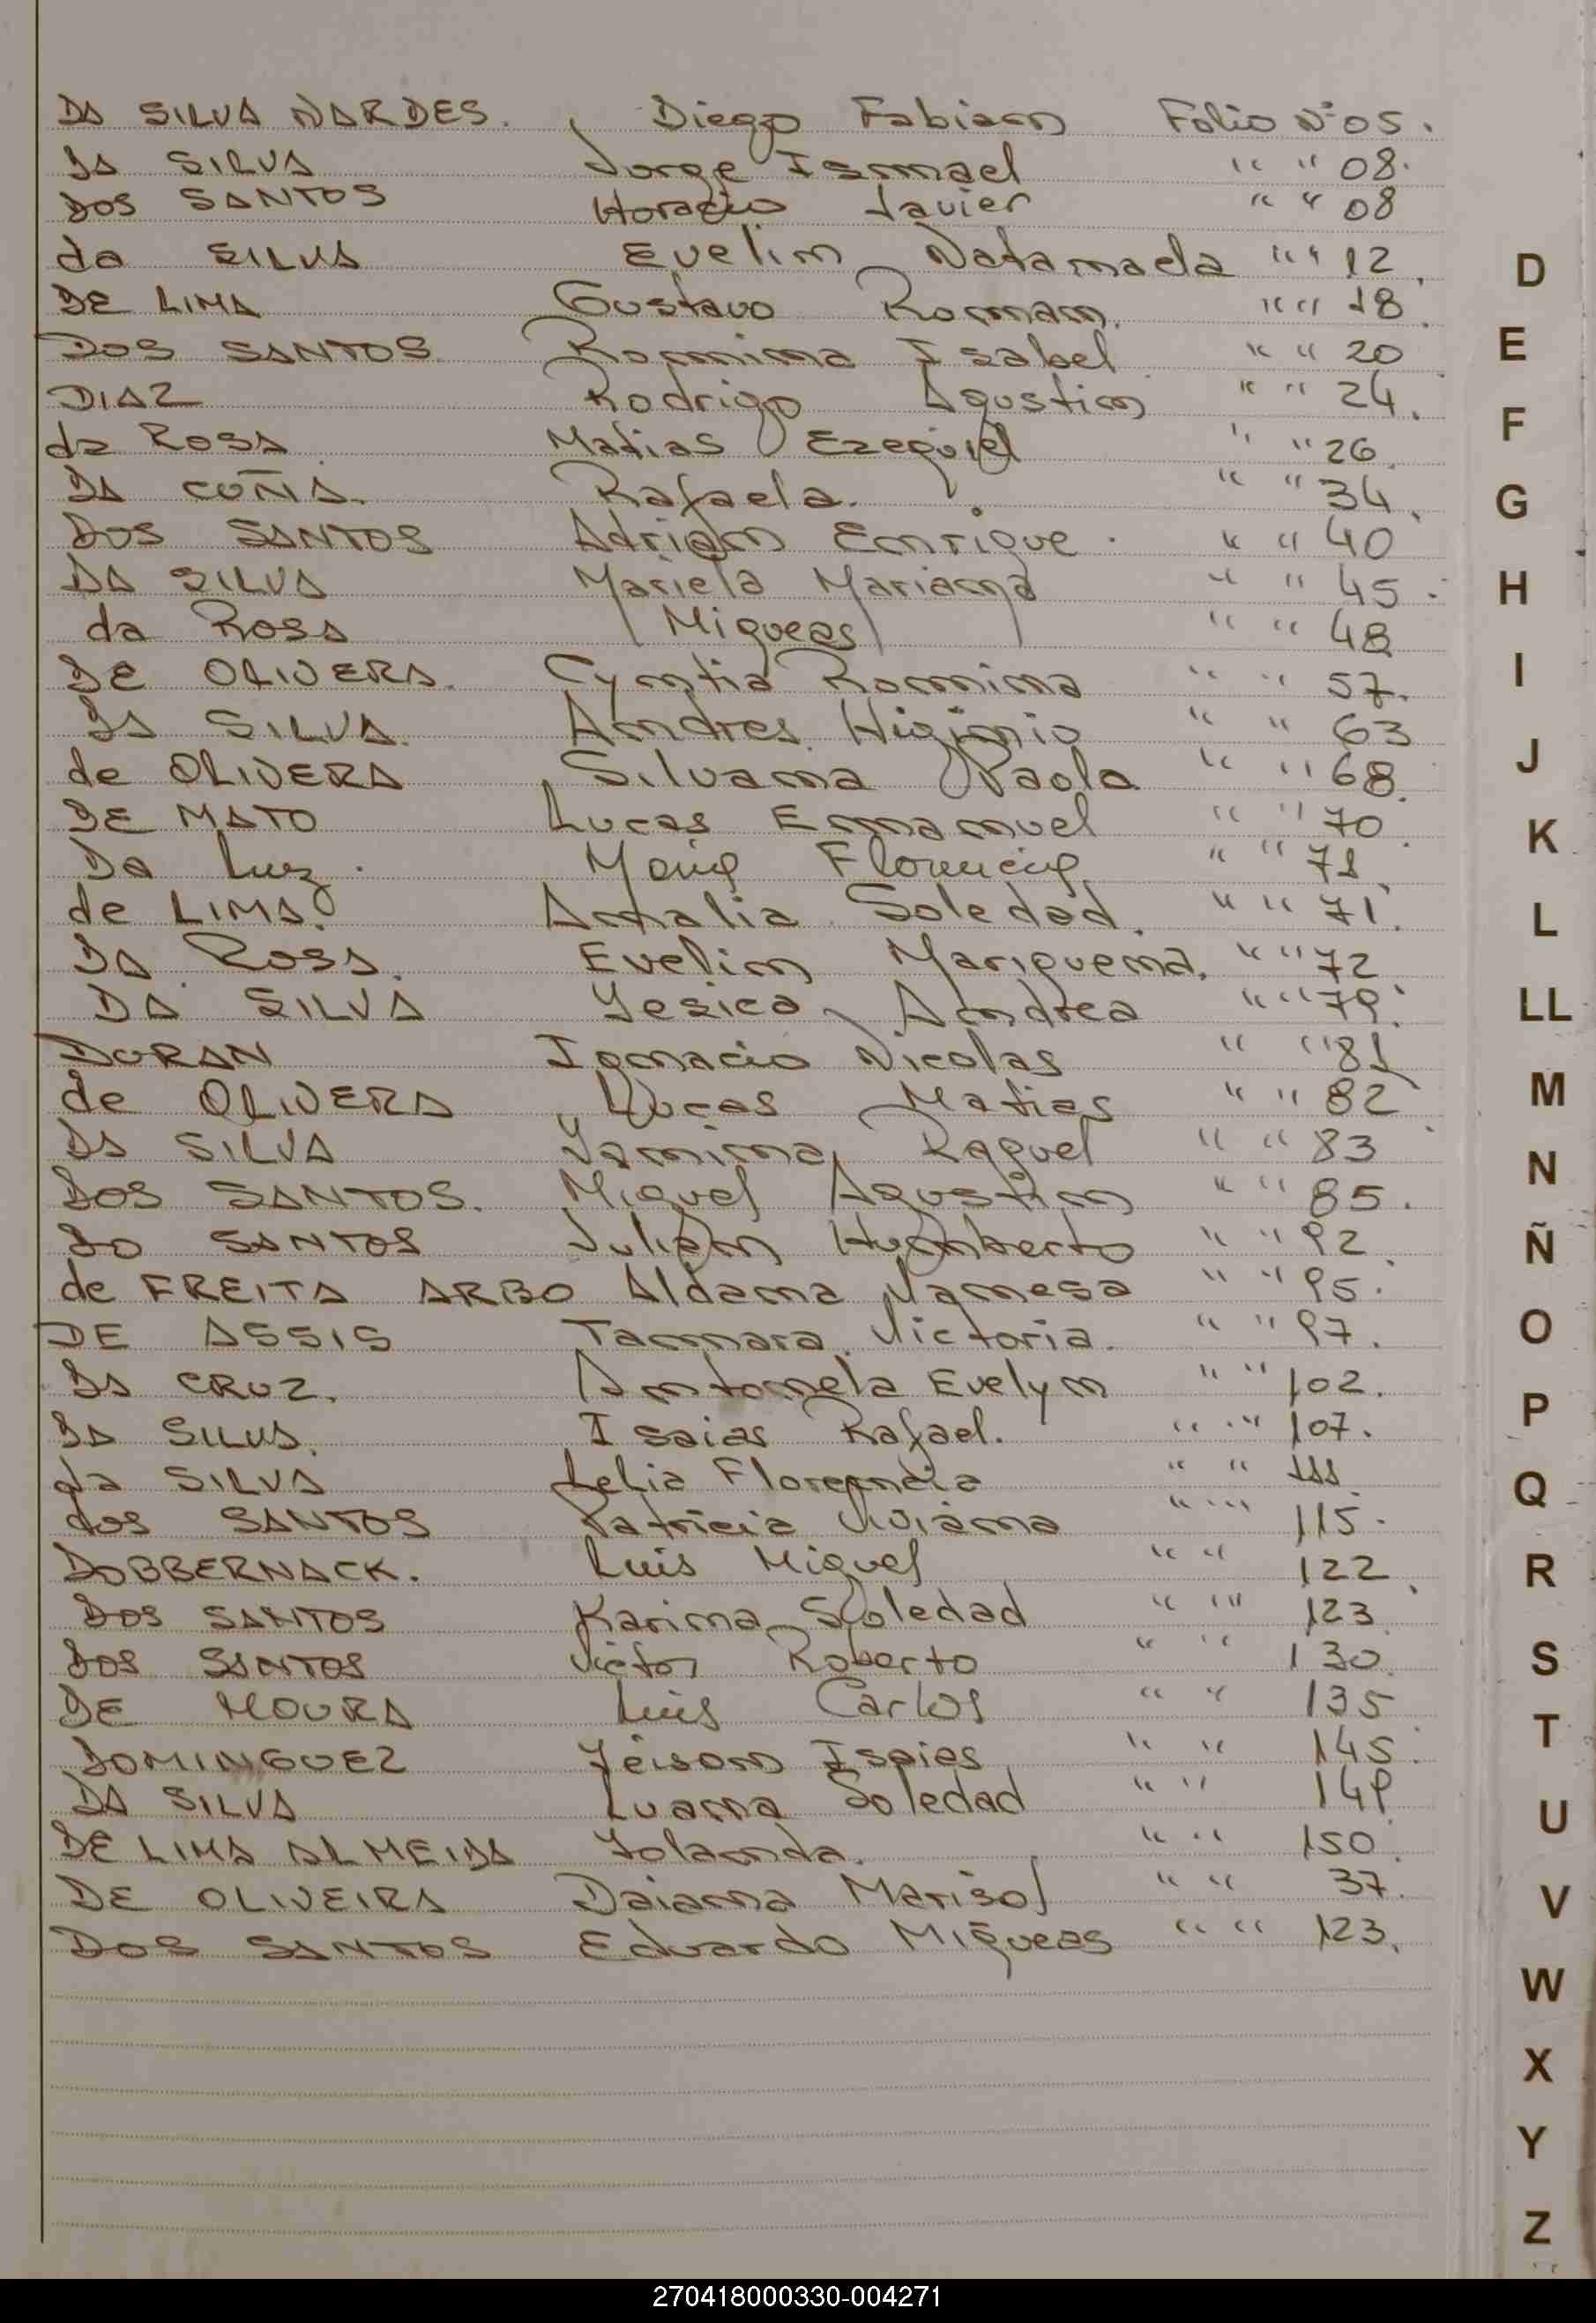 DA SILVA NARDES. Diego Fabian Folio Nº 05.
DA SILVA Jorge Ismael " " 08.
DOS SANTOS Horacio Javier " " 08
da SILVA Evelin Natanaela " " 12.
DE LIMA Gustavo Roman. " " 18.
DOS SANTOS Romina Isabel " " 20
DIAZ Rodrigo Agustin " " 24.
da ROSA Matias Ezequiel " " 26.
DA CUÑA. Rafaela. " " 34.
DOS SANTOS Adrian Enrique. " " 40
DA SILVA Mariela Mariana " " 45.
da ROSA Miqueas " " 48
DE OLIVERA. Cyntia Romina " " 57.
DA SILVA. Andres Higinio " " 63
de OLIVERA Silvana Paola " " 68.
DE MATO Lucas Emmanuel " " 70.
Da Luz. María Florencia " " 71.
de LIMA. Analia Soledad. " " 71.
DA ROSA. Evelin Mariquena. " " 72
DA SILVA Yesica Andrea " " 79.
DURAN Ignacio Nicolas " " 81
de OLIVERA Lucas Matias " " 82
DA SILVA Yamina Raquel " " 83
DOS SANTOS. Miguel Agustin " " 85.
DO SANTOS Julian Humberto " " 92.
de FREITA ARBO Aldana Vanesa " " 95.
DE ASSIS Tamara Victoria. " " 97.
DA CRUZ. Antonela Evelyn " " 102.
DA SILVA. Isaias Rafael. " " 107.
da SILVA Lelia Florencia " " 111.
dos SANTOS Patricia Viviana " " 115.
DOBBERNACK. Luis Miguel " " 122.
DOS SANTOS Karina Soledad " " 123.
DOS SANTOS Victor Roberto " " 130.
DE MOURA Luis Carlos " " 135
DOMINGUEZ Jéison Isaias " " 145.
DA SILVA Luana Soledad " " 149
DE LIMA ALMEIDA Yolanda. " " 150.
DE OLIVEIRA Daiana Marisol " " 37.
DOS SANTOS Eduardo Miqueas " " 123.
D
E
F
G
H
I
J
K
L
LL
M
N
Ñ
O
P
Q
R
S
T
U
V
W
X
Y
Z
270418000330-004271